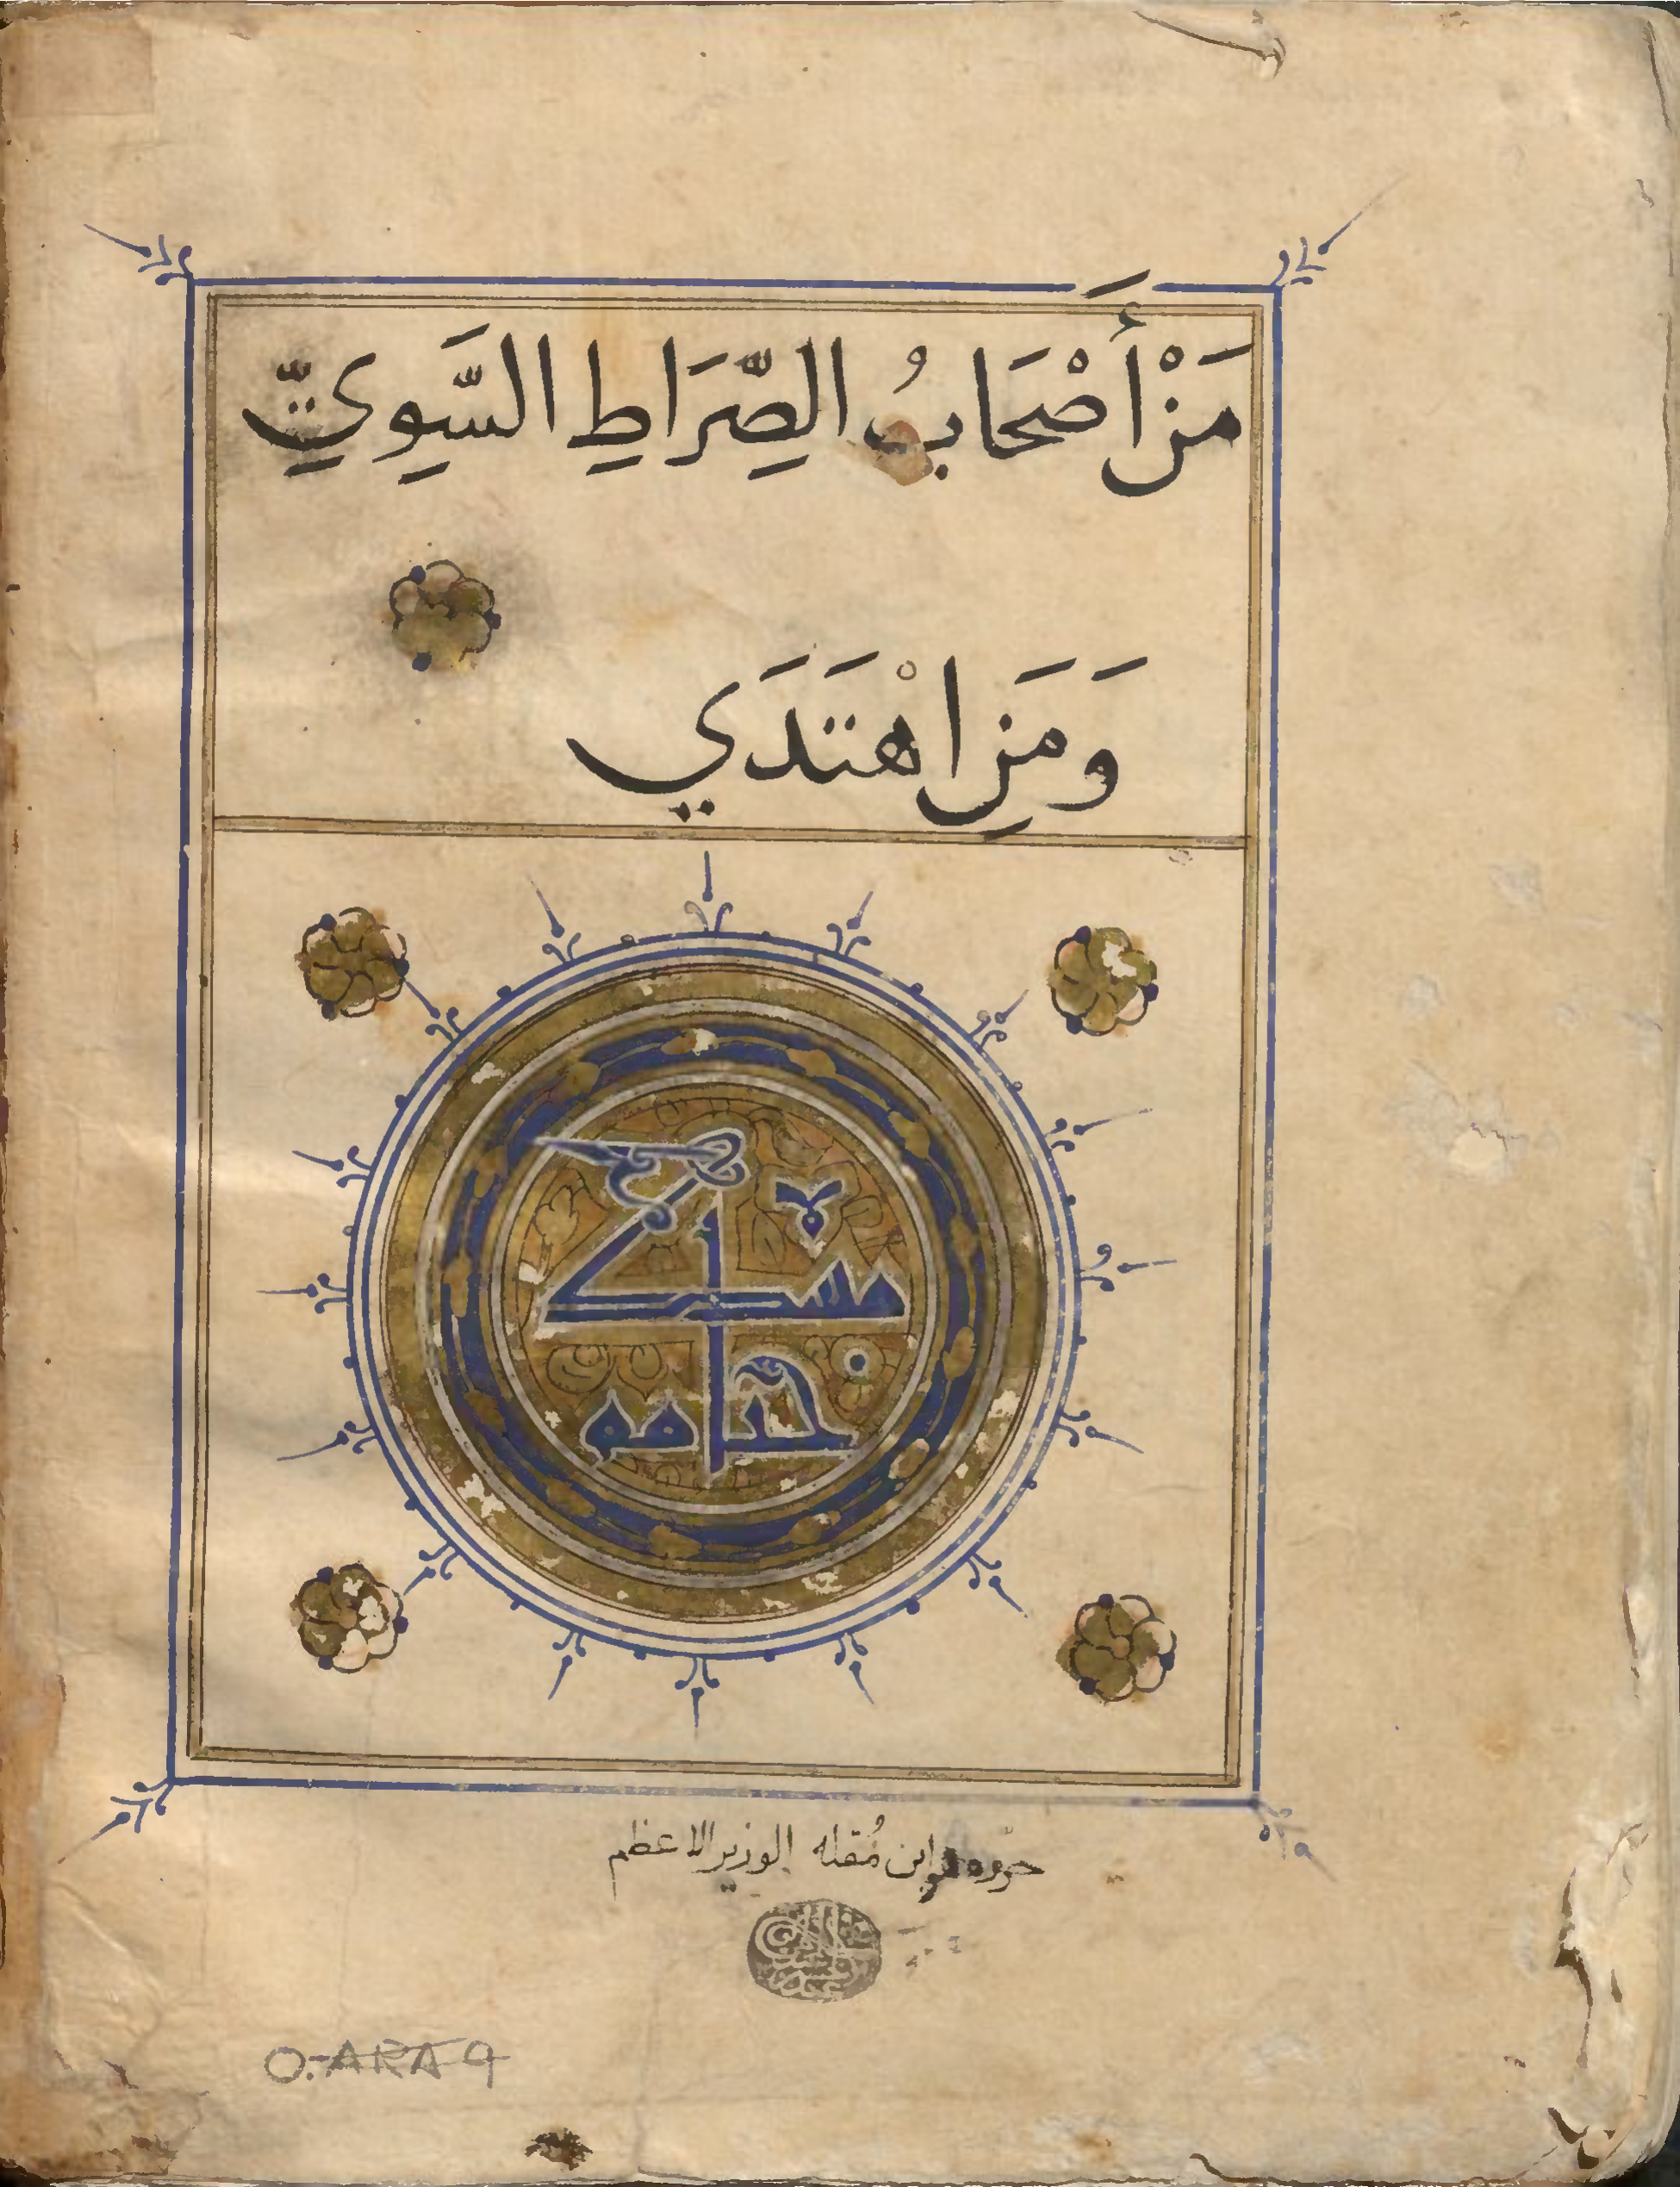 مَنْ أَصْحَابُ الصِّرَاطِ السَّوِيِّ
وَمَنِ اهْتَدَي
حرره ابن مُقله الوزير الاعظم
O.ARA 9